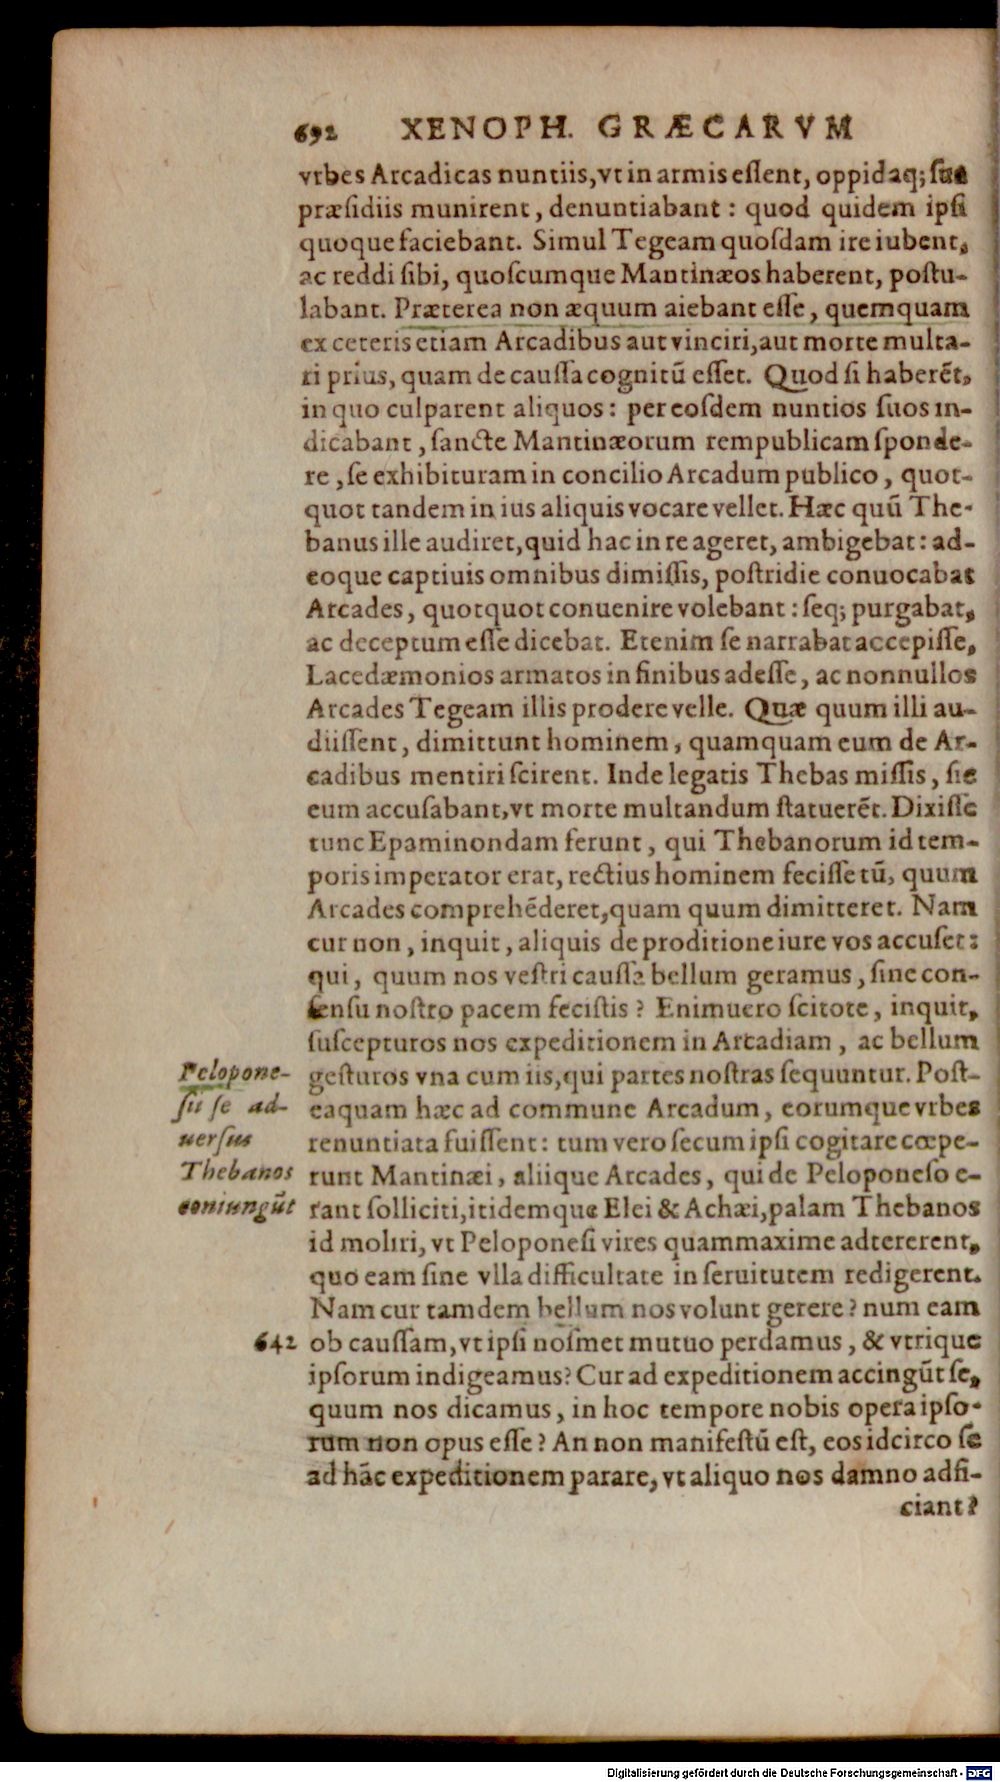 692 XENOPH. GRÆCARVM
vrbes Arcadicas nuntiis, vt in armis eſſent, oppidaq; ſua
præſidiis munirent, denuntiabant: quod quidem ipſi
quoque faciebant. Simul Tegeam quoſdam ire iubent,
ac reddi ſibi, quoſcumque Mantinæos haberent, poſtu-
labant. Præterea non æquum aiebant eſſe, quemquam
ex ceteris etiam Arcadibus aut vinciri, aut morte multa-
ri prius, quam de cauſſa cognitũ eſſet. Quod ſi haberẽt,
in quo culparent aliquos: per eoſdem nuntios ſuos in-
dicabant, ſancte Mantinæorum rempublicam ſponde-
re, ſe exhibituram in concilio Arcadum publico, quot-
quot tandem in ius aliquis vocare vellet. Hæc quũ The-
banus ille audiret, quid hac in re ageret, ambigebat: ad-
eoque captiuis omnibus dimiſſis, poſtridie conuocabat
Arcades, quotquot conuenire volebant: ſeq; purgabat,
ac deceptum eſſe dicebat. Etenim ſe narrabat accepiſſe,
Lacedæmonios armatos in finibus adeſſe, ac nonnullos
Arcades Tegeam illis prodere velle. Quæ quum illi au-
diiſſent, dimittunt hominem, quamquam eum de Ar-
cadibus mentiri ſcirent. Inde legatis Thebas miſſis, ſic
eum accuſabant, vt morte multandum ſtatuerẽt. Dixiſſe
tunc Epaminondam ferunt, qui Thebanorum id tem-
poris imperator erat, rectius hominem feciſſe tũ, quum
Arcades comprehẽderet, quam quum dimitteret. Nam
cur non, inquit, aliquis de proditione iure vos accuſet:
qui, quum nos veſtri cauſſa bellum geramus, ſine con-
ſenſu noſtro pacem feciſtis? Enimuero ſcitote, inquit,
ſuſcepturos nos expeditionem in Arcadiam, ac bellum
geſturos vna cum iis, qui partes noſtras ſequuntur. Poſt-
eaquam hæc ad commune Arcadum, eorumque vrbes
renuntiata fuiſſent: tum vero ſecum ipſi cogitare cœpe-
runt Mantinæi, aliique Arcades, qui de Peloponeſo e-
rant ſolliciti, itidemque Elei & Achæi, palam Thebanos
id moliri, vt Peloponeſi vires quammaxime adtererent,
quo eam ſine vlla difficultate in ſeruitutem redigerent.
Nam cur tamdem bellum nos volunt gerere? num eam
ob cauſſam, vt ipſi noſmet mutuo perdamus, & vtrique
ipſorum indigeamus? Cur ad expeditionem accingũt ſe,
quum nos dicamus, in hoc tempore nobis opera ipſo-
rum non opus eſſe? An non manifeſtũ eſt, eos idcirco ſe
ad hãc expeditionem parare, vt aliquo nos damno adfi-
ciant?
Pelopone-
ſii ſe ad-
uerſus
Thebanos
coniungũt
642
Digitalisierung gefördert durch die Deutsche Forschungsgemeinschaft - DFG